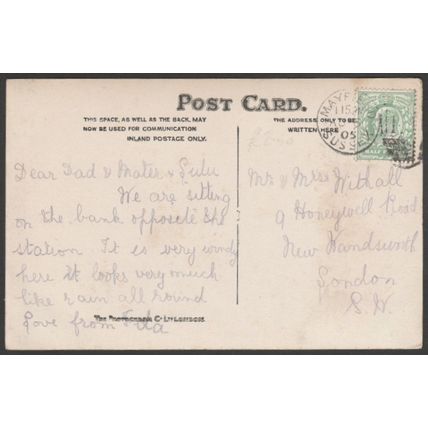 POST CARD.
THIS SPACE, AS WELL AS THE BACK, MAY
NOW BE USED FOR COMMUNICATION
INLAND POSTAGE ONLY.
THE ADDRESS ONLY TO BE
WRITTEN HERE
MAYF
05
SUS
HALF
Dear Dad & Mater & Lulu
We are sitting
on the bank opposite the
station. It is very windy
here it looks very much
like rain all round
Love from
Mr & Mrs Withall
9 Honeywell Road
New Wandsworth
London
S.W.
The Photochrom Co Ltd London